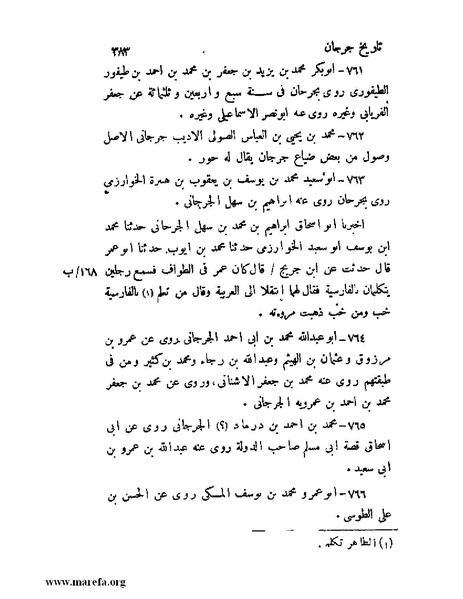 تاريخ جرجان ٣٨٣
٧٦١-ابوبكر محمد بن يزيد بن جعفر بن محمد بن احمد بن طيفور
الطيفورى روى بجرجان فى سنة سبع واربعين وثلثمائة عن جعفر
الفريابى وغيره روى عنه ابونصر الاسماعيلى وغيره .
٧٦٢-محمد بن يحيى بن العباس الصولى الاديب جرجانى الاصل
وصول من بعض ضياع جرجان يقال له حور .
٧٦٣-ابوسعيد محمد بن يوسف بن يعقوب بن همرة الخوارزمى
روى بجرجان روى عنه ابراهيم بن سهل الجرجانى .
اخبرنا ابو اسحاق ابراهيم بن محمد بن سهل الجرجانى حدثنا محمد
ابن يوسف ابو سعيد الخوارزمى حدثنا محمد بن ايوب حدثنا ابو عمر
قال حدثت عن ابن جريج / قال كان عمر فى الطواف فسمع رجلين ١٦٨/ب
يتكلمان بالفارسية فقال لهما إنتقلا الى العربية وقال من تعلم (١) بالفارسية
خب ومن خب ذهبت مروءته .
٧٦٤-ابوعبدالله محمد بن ابى احمد الجرجانى روى عن عمرو بن
مرزوق وعثمان بن الهيثم وعبدالله بن رجاء ومحمد بن كثير ومن فى
طبقتهم روى عنه محمد بن جعفر الاشنانى، وروى عن محمد بن جعفر
محمد بن احمد بن عمرويه الجرجانى .
٧٦٥-محمد بن احمد بن درماد (؟) الجرجانى روى عن ابى
اسحاق قصة ابى مسلم صاحب الدولة روى عنه عبدالله بن عمرو بن
ابى سعيد .
٧٦٦-ابوعمرو محمد بن يوسف المسكى روى عن الحسن بن
على الطوسى .
(١) الظاهر تكلم .
www.marefa.org